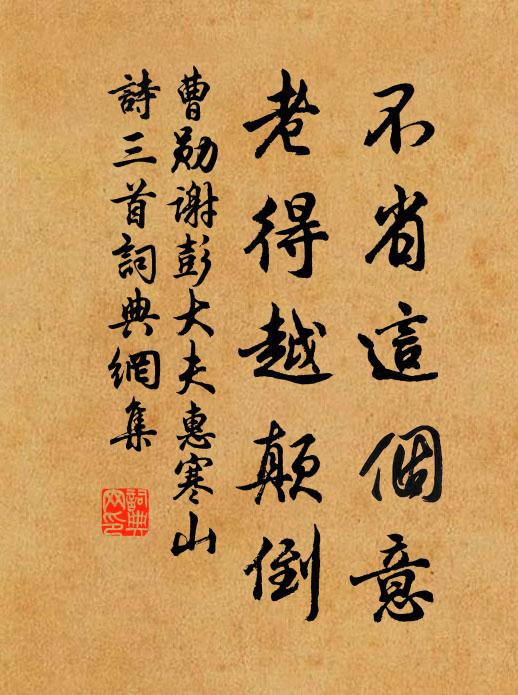 不省這個意
老得越顛倒
曹勛謝彭大夫惠寒山
詩三首詞典網集
詞典網印